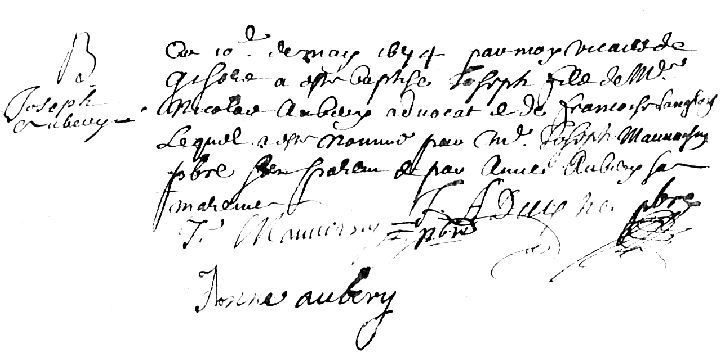 B
Joseph
Aubery
Ce 10e de may 1674 par moy vicaire de
Gisors a esté baptisé Joseph fils de Me
Nicolas Aubery advocat & de Francoise Langlois
Lequel a esté nommé par Me Joseph
pbre son parein & par Anne Aubery sa
mareine
J. pbre
pbre
Anne aubery